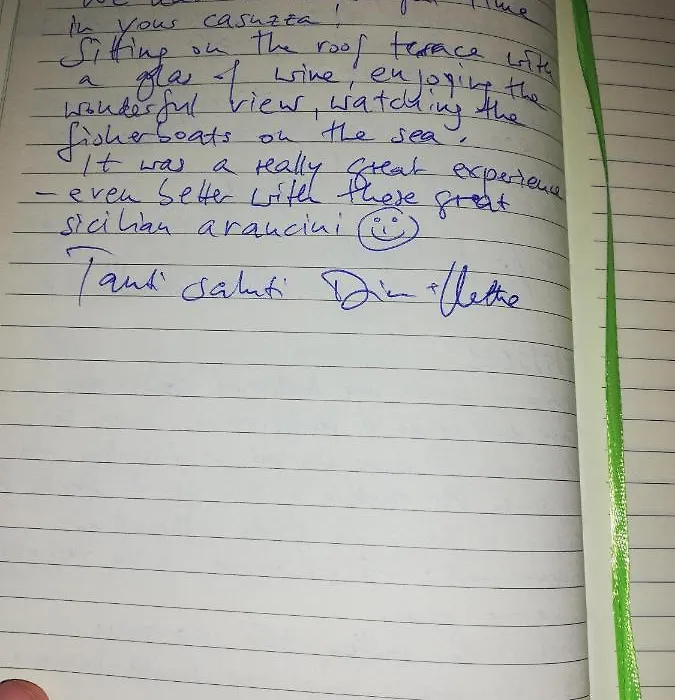 time
in your casuzza!
Sitting on the roof terrace with
a glas of wine, enjoying the
wonderful view, watching the
fisherboats on the sea.
It was a really great experience
– even better with these great
sicilian arancini
Tanti saluti